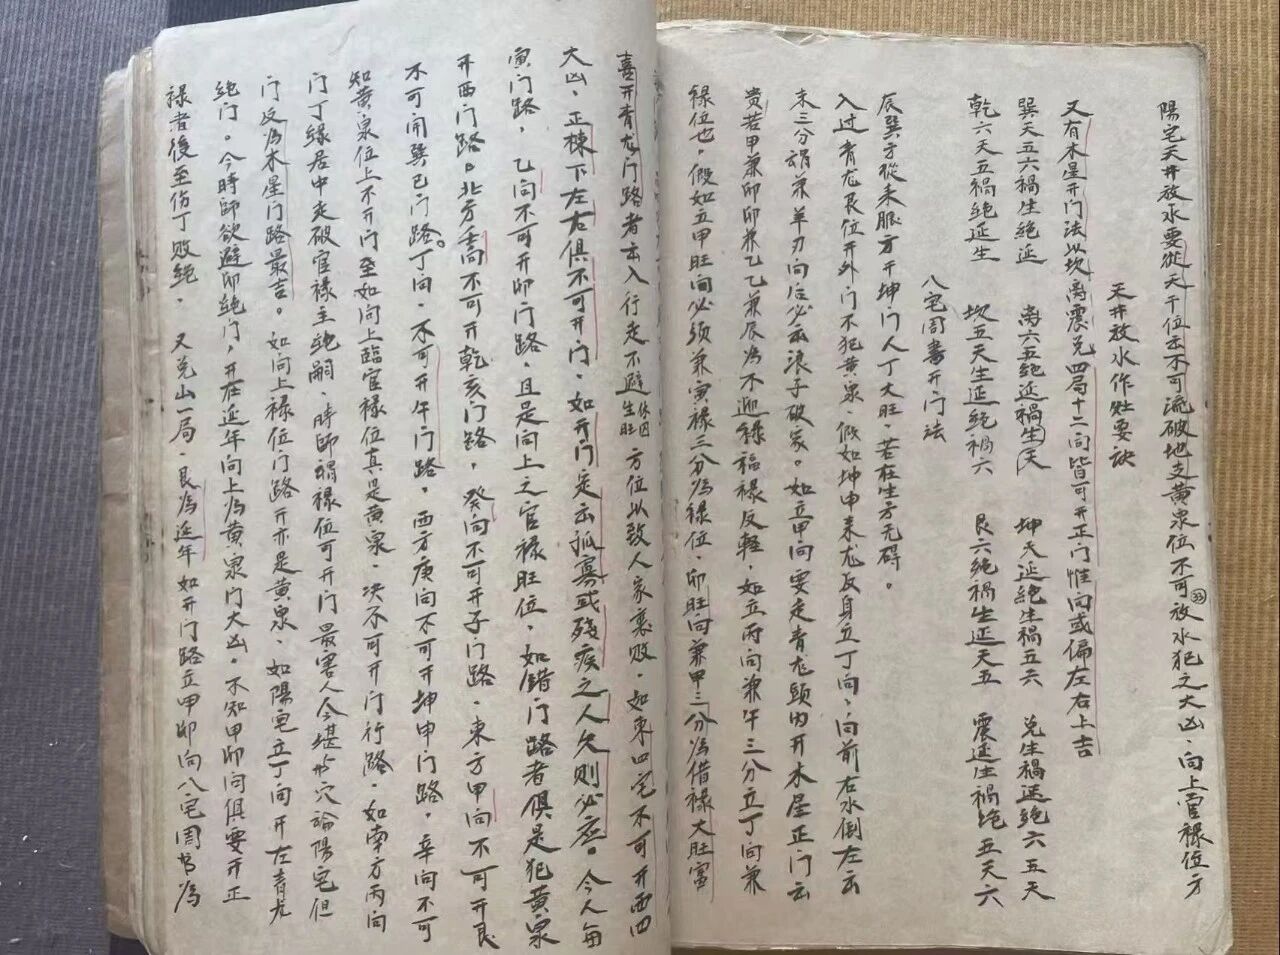 陽宅天井放水要從天干位去不可流破地支黄泉位不可放水犯之大凶、向上官禄位方
天井放水作灶要訣
又有木星开门法以坎离震兑四局十二向皆可开正门惟向或偏左右上吉
巽天五六禍生絶延 离六五絶延禍生天 坤天延絶生禍五六 兑生禍延絶六五天
乾六天五禍絶延生 坎五天生延絶禍六 艮六絶禍生延天五 震延生禍絶五天六
八宅周書开门法
辰巽方從来脈方开坤门人丁大旺、若在生方无碍。
入过青龙艮位开外门不犯黄泉、假如坤申来龙反身立丁向、向前右水倒左云
未三分謂兼羊刃向后必云浪子破家。如立甲向要走青龙頭内开木星正门云
貴若甲兼卯卯兼乙乙兼辰為不迎禄福禄反輕、如立丙向兼午三分立丁向兼
禄位也。假如立甲旺向必须兼寅禄三分為禄位、卯旺向兼甲三分為借禄大旺富
喜开青龙门路者本入行走不避休囚生旺方位以致人家衰败、如東四宅不可开西四
大凶、正棟下左右俱不可开门、如开门定云孤寡或殘疾之人久則必應。今人每
寅门路，乙向不可开卯门路、且是向上之官禄旺位、如錯门路者俱是犯黄泉
开西门路。北方壬向不可开乾亥门路，癸向不可开子门路、東方甲向不可开艮
不可開巽巳门路。丁向、不可开午门路，西方庚向不可开坤申门路，辛向不可
知黄泉位上不开门至如向上臨官禄位真是黄泉、决不可开门行路、如南方丙向
门丁緣居中走破官禄主絶嗣、時師謂禄位可开门最害人今堪步穴論陽宅但
门反為木星门路最吉。如向上禄位门路开亦是黄泉、如陽宅立丁向开左青龙
絶门。今時師欲避卯絶门，开在延年向上為黄泉门大凶。不知甲卯向俱要开正
禄者後至伤丁敗絶、 又兑山一局、艮為延年如开门路立甲卯向八宅周書為